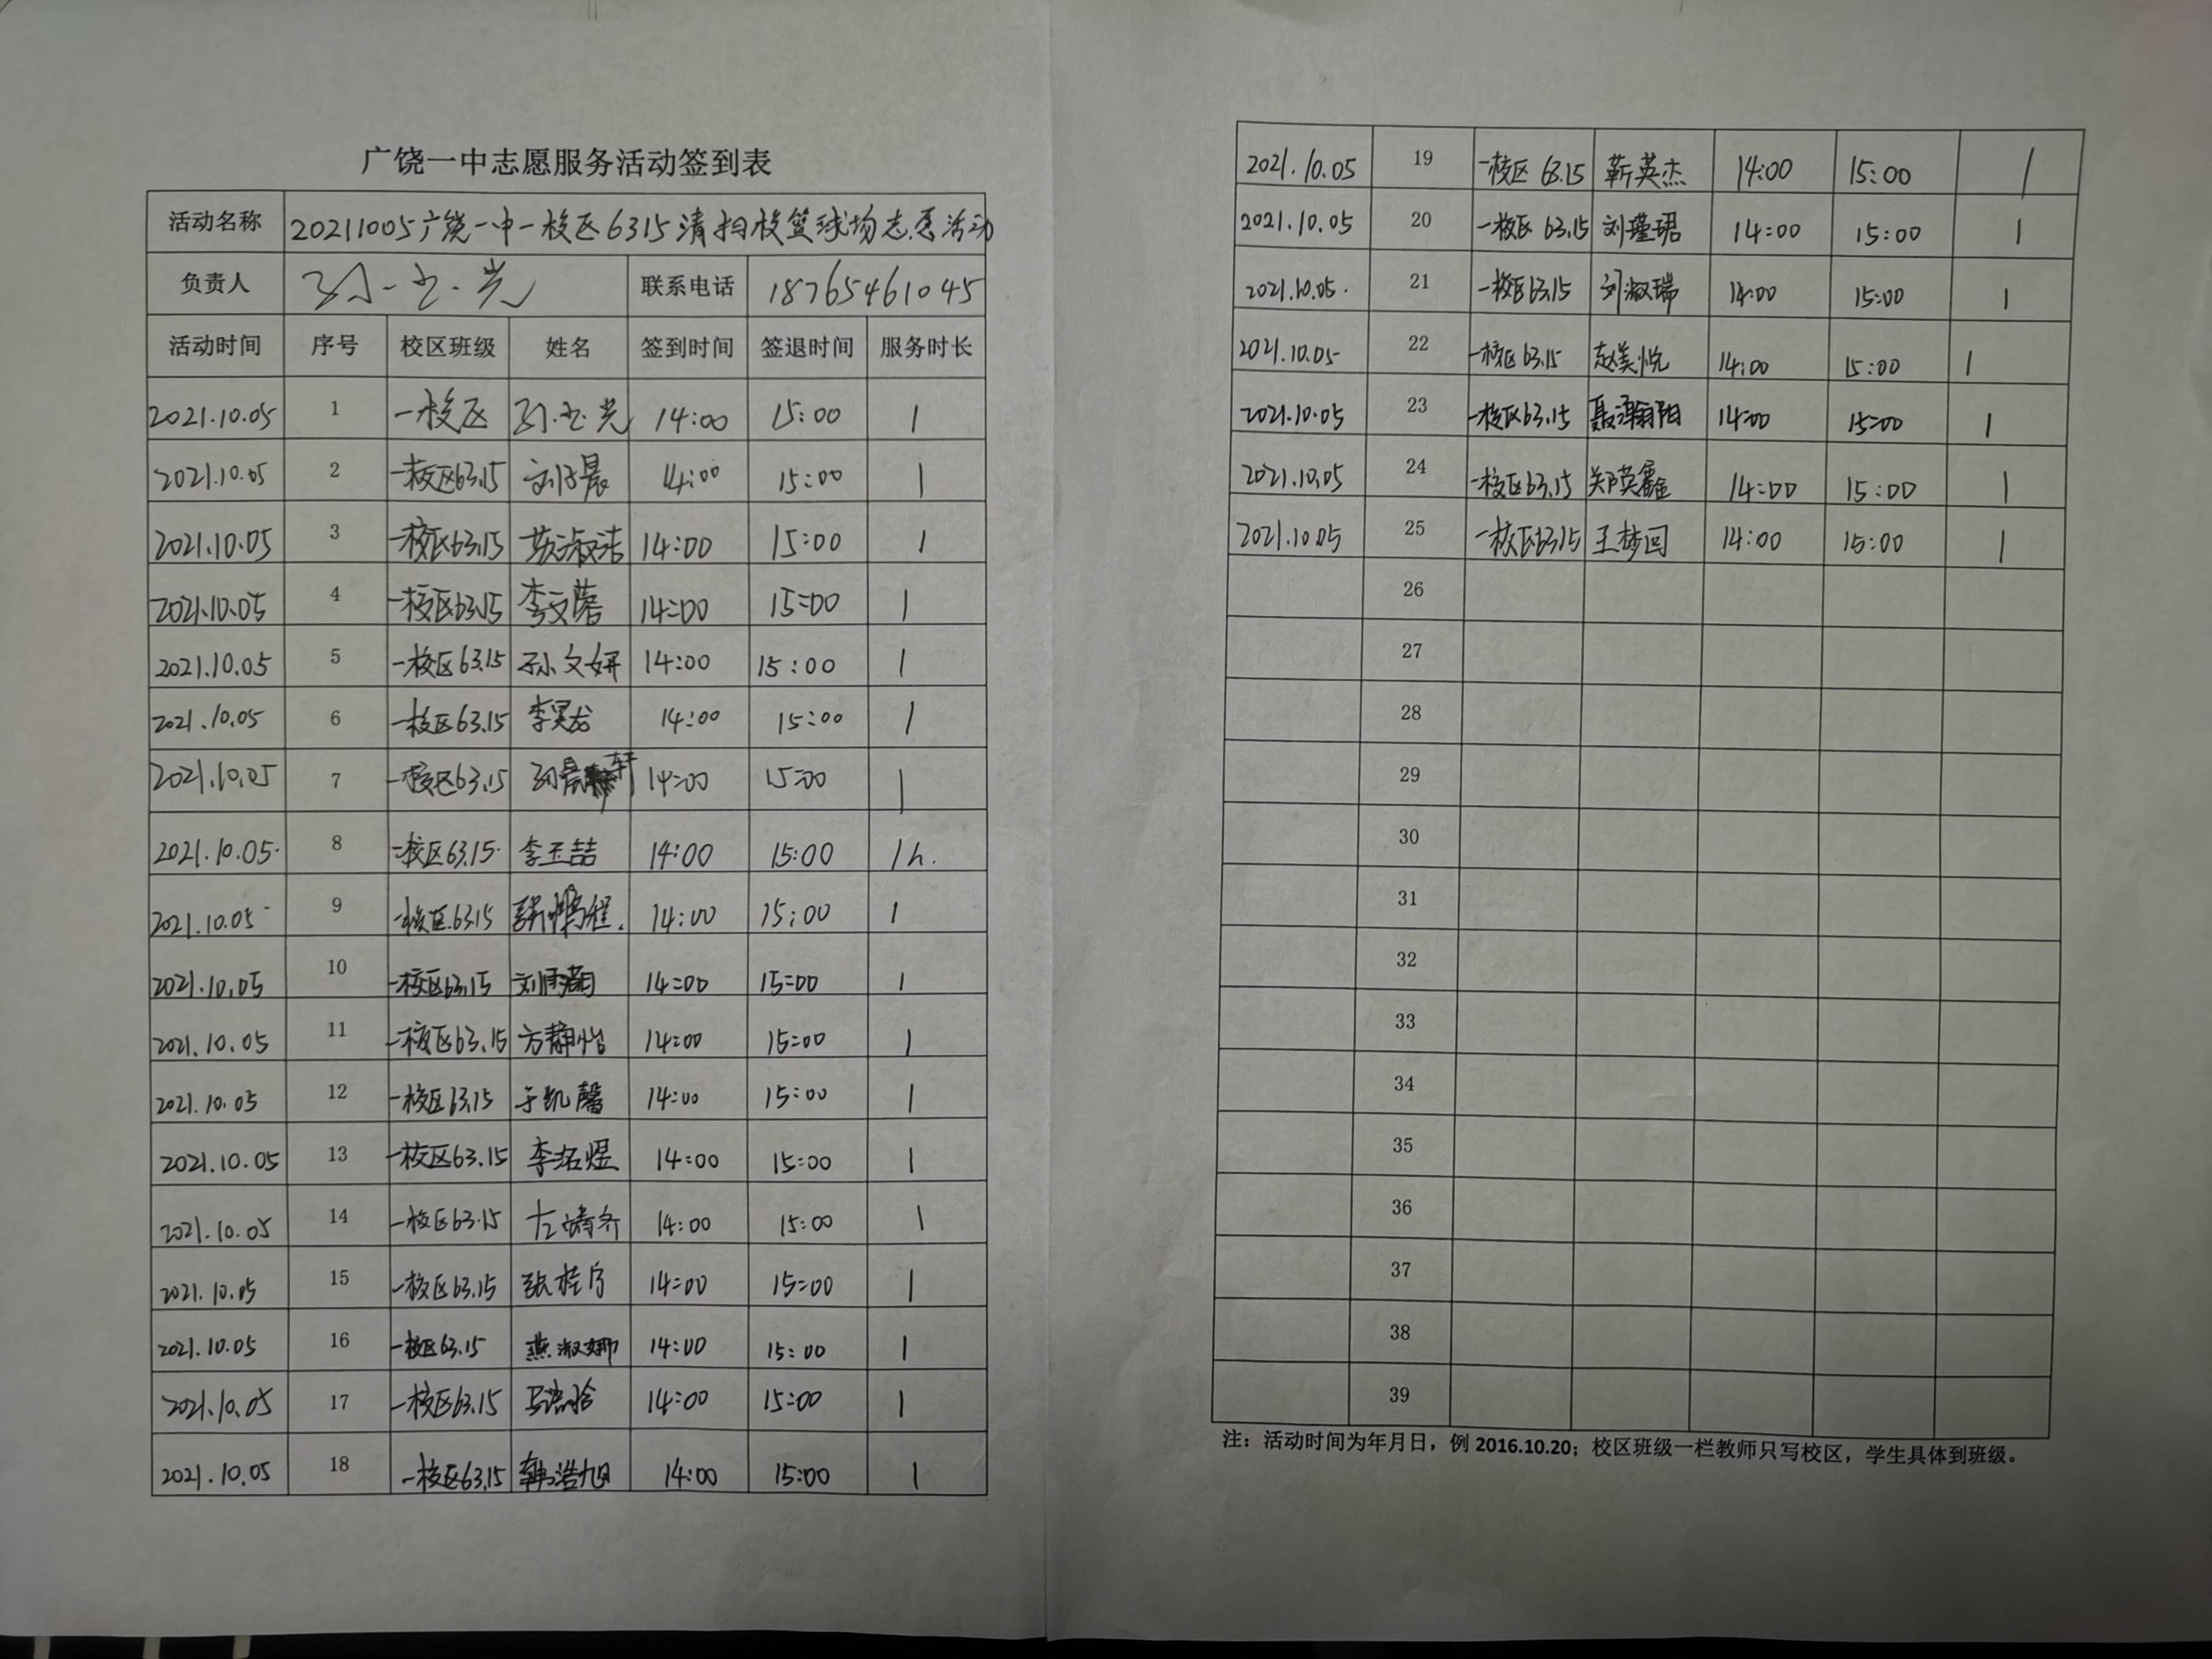 广饶一中志愿服务活动签到表
活动名称 20211005广饶一中一校区6315清扫校篮球场志愿活动
负责人 联系电话 18765461045
活动时间 序号 校区班级 姓名 签到时间 签退时间 服务时长
2021.10.05 1 一校区 14:00 15:00 1
2021.10.05 2 一校区63.15 刘子晨 14:00 15:00 1
2021.10.05 3 一校区63.15 14:00 15:00 1
2021.10.05 4 一校区63.15 李文蓉 14:00 15:00 1
2021.10.05 5 一校区63.15 孙文妍 14:00 15:00 1
2021.10.05 6 一校区63.15 李昊龙 14:00 15:00 1
2021.10.05 7 一校区63.15 孙晨轩 14:00 15:00 1
2021.10.05. 8 一校区63.15. 李玉喆 14:00 15:00 1h.
2021.10.05 9 一校区.63.15 14:00 15:00 1
2021.10.05 10 一校区63.15 14:00 15:00 1
2021.10.05 11 一校区63.15 方静怡 14:00 15:00 1
2021.10.05 12 一校区63.15 于凯馨 14:00 15:00 1
2021.10.05 13 一校区63.15 李拓煜 14:00 15:00 1
2021.10.05 14 一校区63.15 14:00 15:00 1
2021.10.05 15 一校区63.15 14:00 15:00 1
2021.10.05 16 一校区63.15 燕淑娜 14:00 15:00 1
2021.10.05 17 一校区63.15 14:00 15:00 1
2021.10.05 18 一校区63.15 韩浩旭 14:00 15:00 1
2021.10.05 19 一校区 63.15 靳英杰 14:00 15:00 1
2021.10.05 20 一校区 63.15 刘瑾珺 14:00 15:00 1
2021.10.05. 21 一校区63.15 刘淑瑞 14:00 15:00 1
2021.10.05 22 一校区63.15 赵美悦 14:00 15:00 1
2021.10.05 23 一校区63.15 聂潭翰阳 14:00 15:00 1
2021.10.05 24 一校区63.15 郑英鑫 14:00 15:00 1
2021.10.05 25 一校区63.15 王梦回 14:00 15:00 1
26
27
28
29
30
31
32
33
34
35
36
37
38
39
注：活动时间为年月日，例 2016.10.20；校区班级一栏教师只写校区，学生具体到班级。